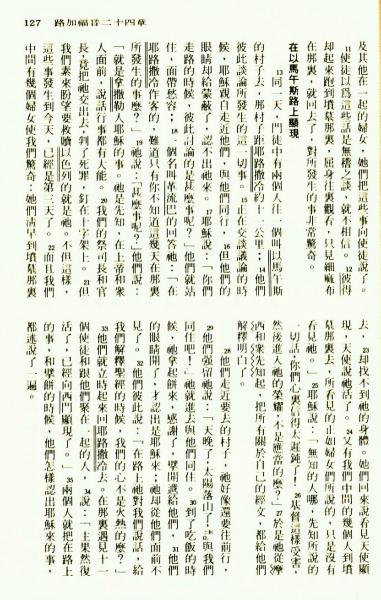 127 路加福音二十四章
及其他在一起的婦女,她們把這些事向使徒說了。
11使徒以爲這些話是無稽之談,就不相信。12彼得
却起來跑到墳墓那裏,屈身往裏觀看,只見細麻布
在那裏,就回去了,對所發生的事非常驚奇。
在以馬午斯路上顯現
13同一天,門徒中有兩個人往一個叫以馬午斯
的村子去,那村子距耶路撒冷約十一公里;14他們
彼此談論所發生的這一切事。15正在交談議論的時
候,耶穌親自走近他們,與他們同行,16但他們的
眼睛却給蒙蔽了,認不出祂來。17耶穌說:「你們
走路的時候,彼此討論的是甚麼事呢?」他們就站
住,面帶愁容;18一個名叫革流巴的回答祂:「在
耶路撒冷作客的,難道只有你不知道這幾天在那裏
所發生的事麼?」19祂說:「甚麼事呢?」他們說:
「就是拿撒勒人耶穌的事。祂是先知,在上帝和衆
人面前,說話行事都有大能。20我們的祭司長和官
長,竟把祂交出去,判了死罪,釘在十字架上。21但
我們素來盼望要救贖以色列的就是祂。不但這樣,
這些事發生到今天,已經是第三天了。22而且我們
中間有幾個婦女使我們驚奇:她們清早到墳墓那裏
去,23却找不到祂的身體。她們回來說看見天使顯
現,天使說祂活了。24又有我們中間的幾個人到墳
墓那裏去,所看見的正如婦女們所說的,只是沒有
看見祂。」25耶穌說:「無知的人哪,先知所說的
一切話,你們心裏信得太遲鈍了!26基督這樣受害,
然後進入祂的榮耀,不是應當的麼?」27於是祂從摩
西和衆先知起,把所有關於自己的經文,都給他們
解釋明白了。
28他們走近要去的村子,祂好像還要往前行,
29他們強留祂說:「天晚了,太陽落山了,請與我們
同住吧!」祂就進去與他們同住。30到了吃飯的時
候,祂拿起餅來,感謝了,擘開遞給他們,31他們
的眼睛開了,才認出是耶穌來;祂却從他們面前不
見了。32他們彼此說:「在路上祂對我們說話,給
我們解釋聖經的時候,我們的心不是火熱的麼?」
33他們就立時起來回耶路撒冷去,在那裏遇見十一
個使徒和跟他們聚在一起的人,34說:「主果然復
活了,已經向西門顯現了。」35兩個人就把在路上
的事,和擘餅的時候,他們怎樣認出耶穌來的事,
都述說了一遍。